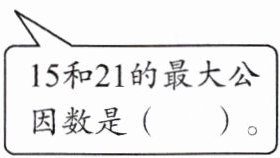 15和21的最大公
因数是（　　）。